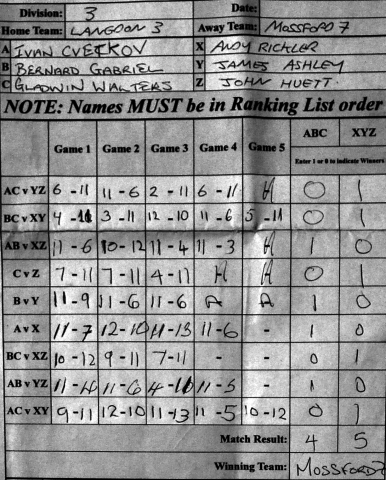 Division: 3 Date:
Home Team: LANGDON 3 Away Team: MOSSFORD 7
A IVAN CVETKOV X ANDY RICHLER
B BERNARD GABRIEL Y JAMES ASHLEY
C GLADWIN WALTERS Z JOHN HUETT.
NOTE: Names MUST be in Ranking List order
ABC XYZ
Game 1 Game 2 Game 3 Game 4 Game 5 Enter 1 or 0 to indicate Winners
AC v YZ 6 - 11 11 - 6 2 - 11 6 - 11 0 1
BC v XY 4 - 11 3 - 11 12 - 10 11 - 6 5 - 11 0 1
AB v XZ 11 - 6 10 - 12 11 - 4 11 - 3 1 0
C v Z 7 - 11 7 - 11 4 - 11 0 1
B v Y 11 - 9 11 - 6 11 - 6 1 0
A v X 11 - 7 12 - 10 11 - 13 11 - 6 - 1 0
BC v XZ 10 - 12 9 - 11 7 - 11 - - 0 1
AB v YZ 11 - 11 - 6 4 - 11 - 5 - 1 0
AC v XY 9 - 11 12 - 10 11 - 13 11 - 5 10 - 12 0 1
Match Result: 4 5
Winning Team: MOSSFORD 7